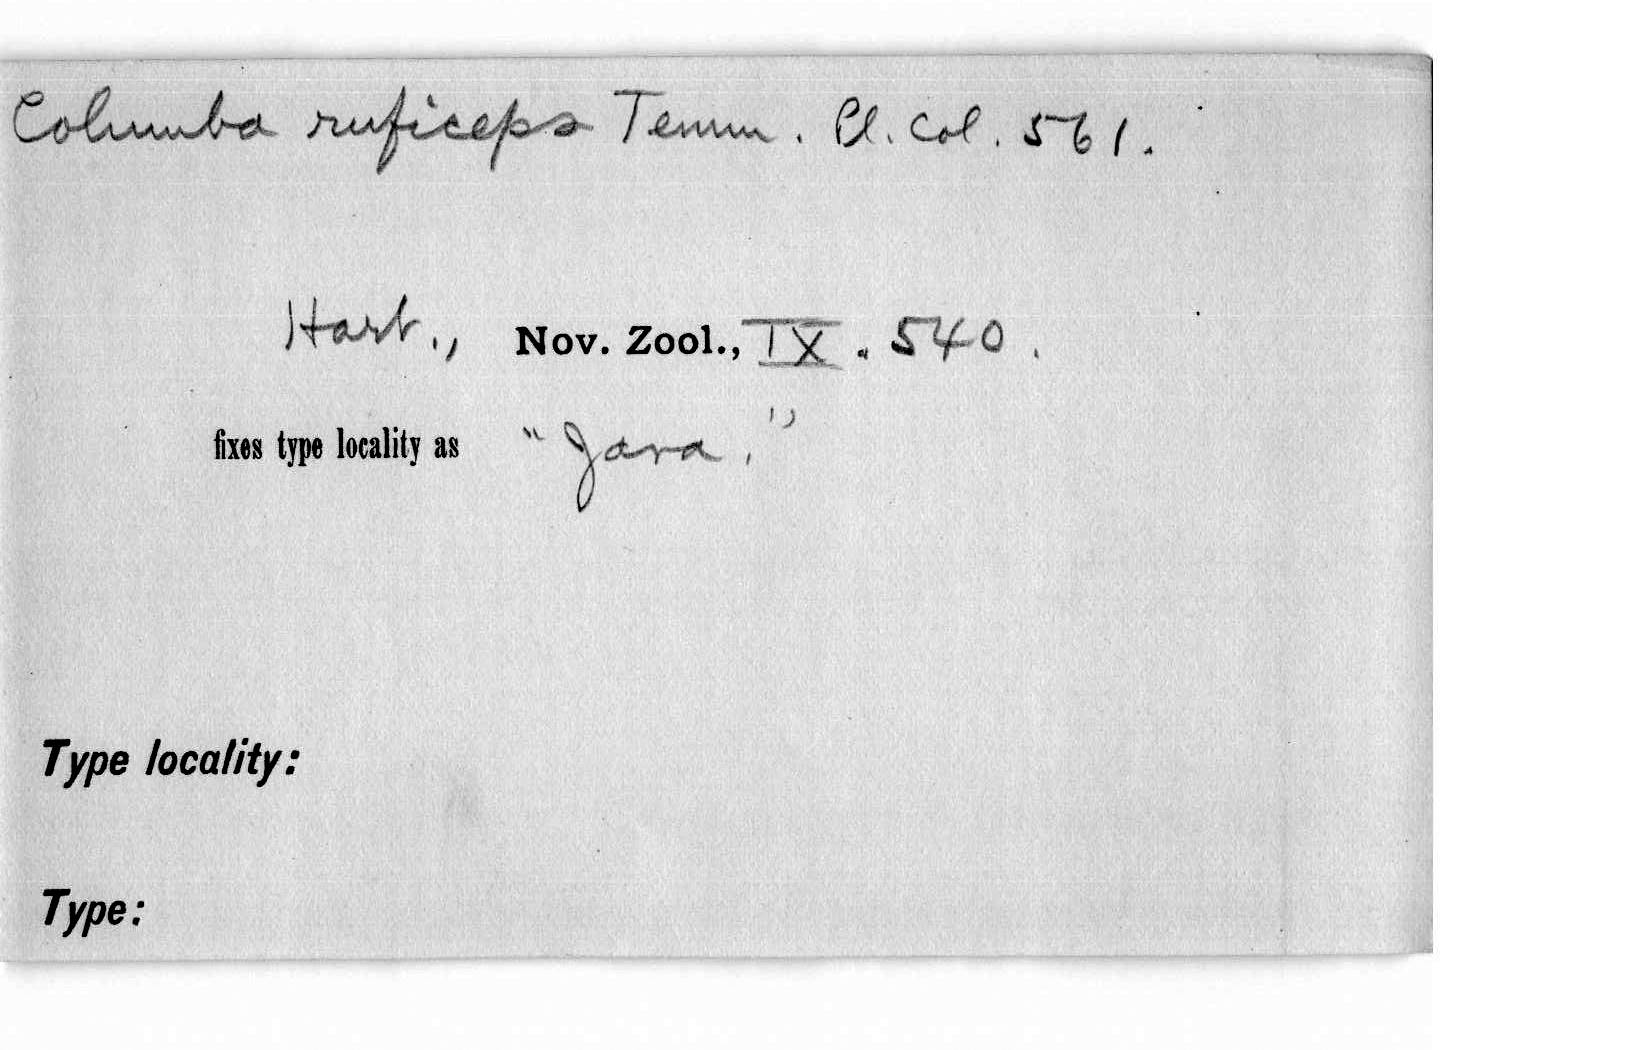 Columba ruficeps Temm. Pl. Col. 561.
Hart., Nov. Zool., IX. 540.
fixes type locality as "Java."
Type locality:
Type: